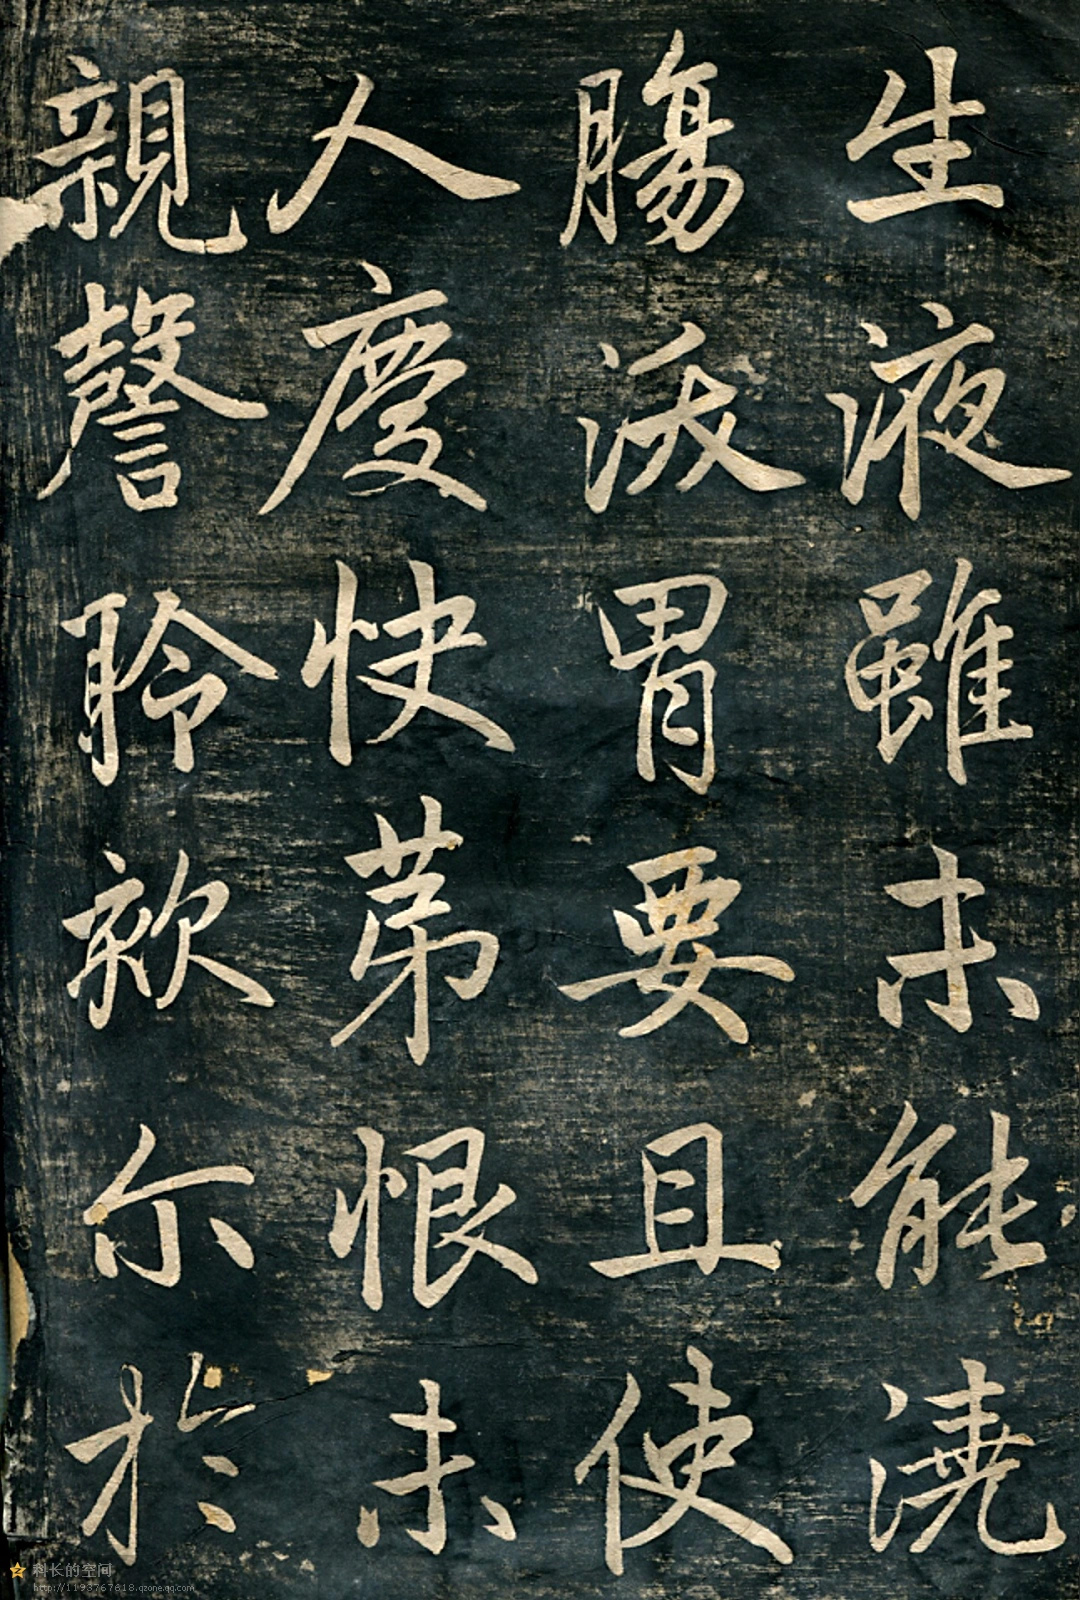 生液雖未能澆
腸沃胃要且使
人慶快苐恨未
親謦聆欬尓於
科长的空间
http://1193767618.qzone.qq.com